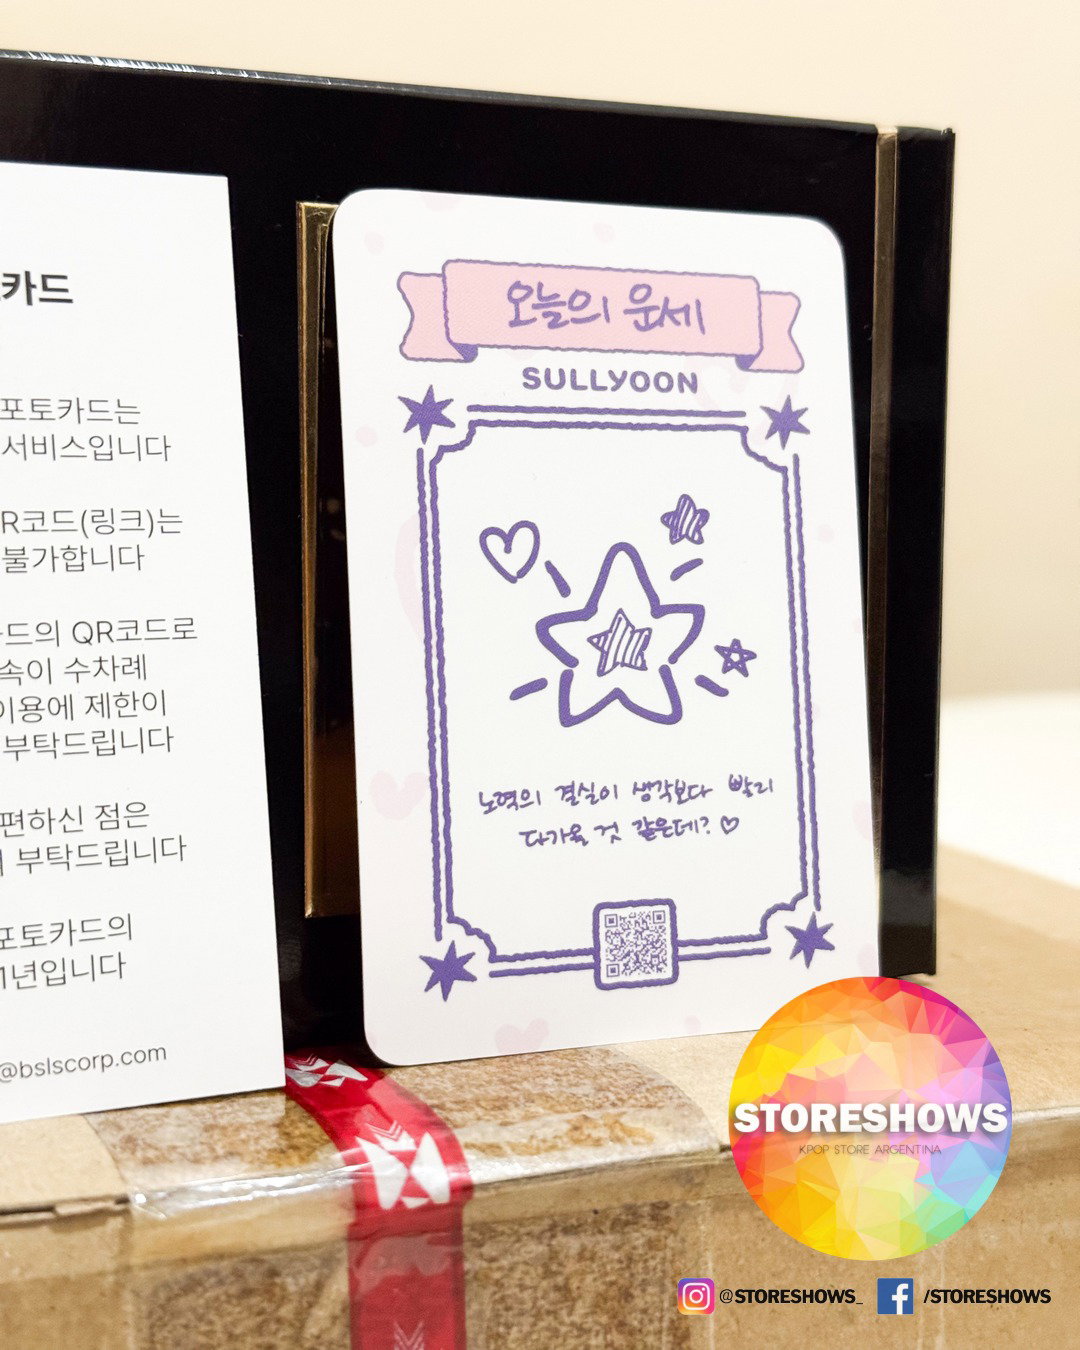 카드
포토카드는
서비스입니다
R코드(링크)는
불가합니다
드의 QR코드로
속이 수차례
이용에 제한이
부탁드립니다
편하신 점은
부탁드립니다
포토카드의
1년입니다
@bslscorp.com
오늘의 운세
SULLYOON
노력의 결실이 생각보다 빨리
다가올 것 같은데? ♡
STORESHOWS
KPOP STORE ARGENTINA
@STORESHOWS_
/STORESHOWS